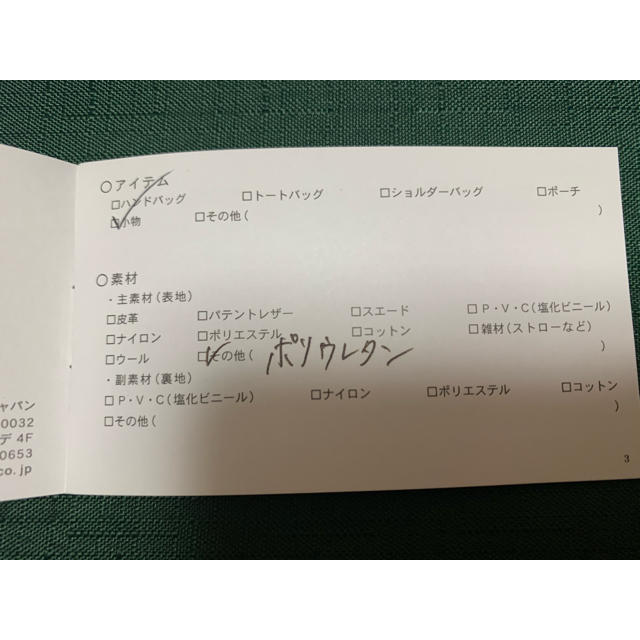 ○アイテム
□ハンドバッグ □トートバッグ □ショルダーバッグ □ポーチ
☑小物 □その他( )
○素材
・主素材(表地)
□皮革 □パテントレザー □スエード □P・V・C(塩化ビニール)
□ナイロン □ポリエステル □コットン □雑材(ストローなど)
□ウール ☑その他( ポリウレタン )
・副素材(裏地)
□P・V・C(塩化ビニール) □ナイロン □ポリエステル □コットン
□その他( )
3
ャパン
0032
デ 4F
0653
co.jp